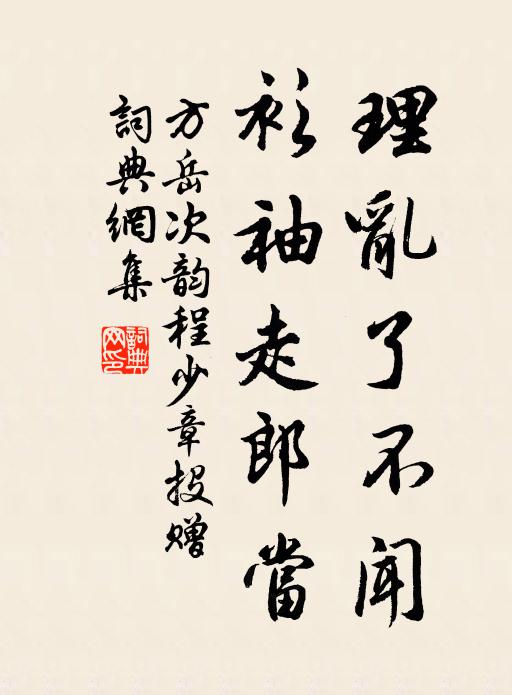 理亂了不闻
衫袖走郎當
方岳次韵程少章投赠
詞典網集
詞典网印